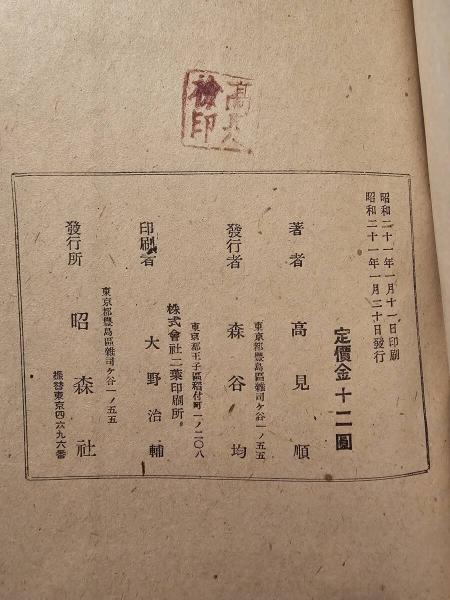 高見
檢印
昭和二十一年一月十一日印刷
昭和二十一年一月二十日發行
定價金十二圓
著者　高見順
東京都豊島區雜司ケ谷一ノ五五
發行者　森谷均
東京都王子區稻付町一ノ二〇八
株式會社二葉印刷所
印刷者　大野治輔
東京都豊島區雜司ケ谷一ノ五五
發行所　昭森社
振替東京四六九六番